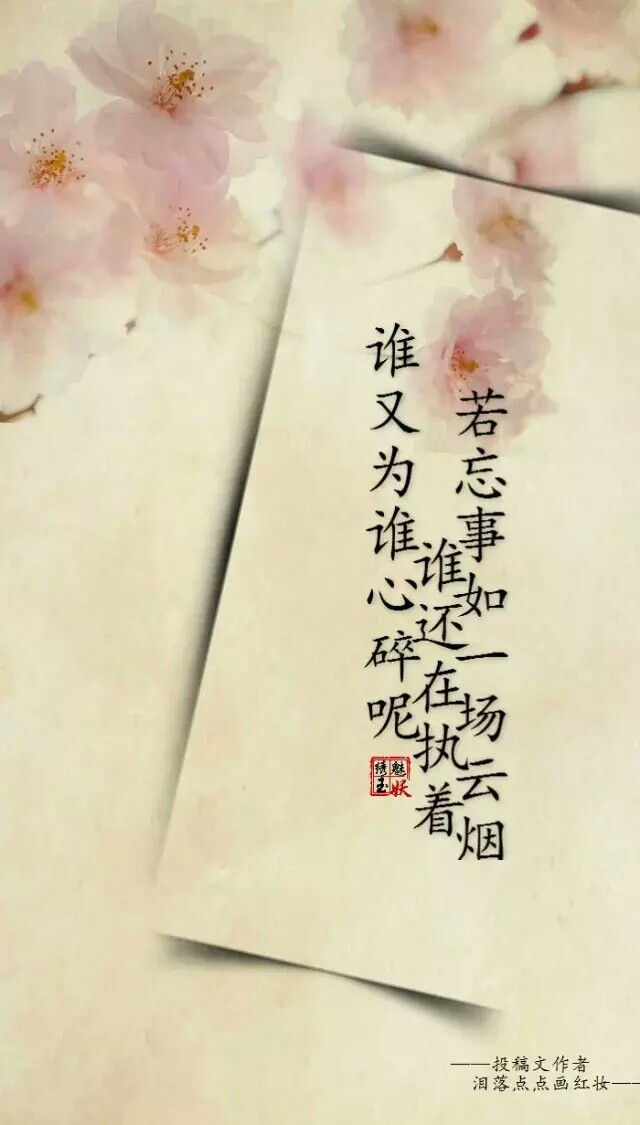 若忘事如一场云烟
谁还在执着
谁又为谁心碎呢
魅妖
绣玉
——投稿文作者
泪落点点画红妆——